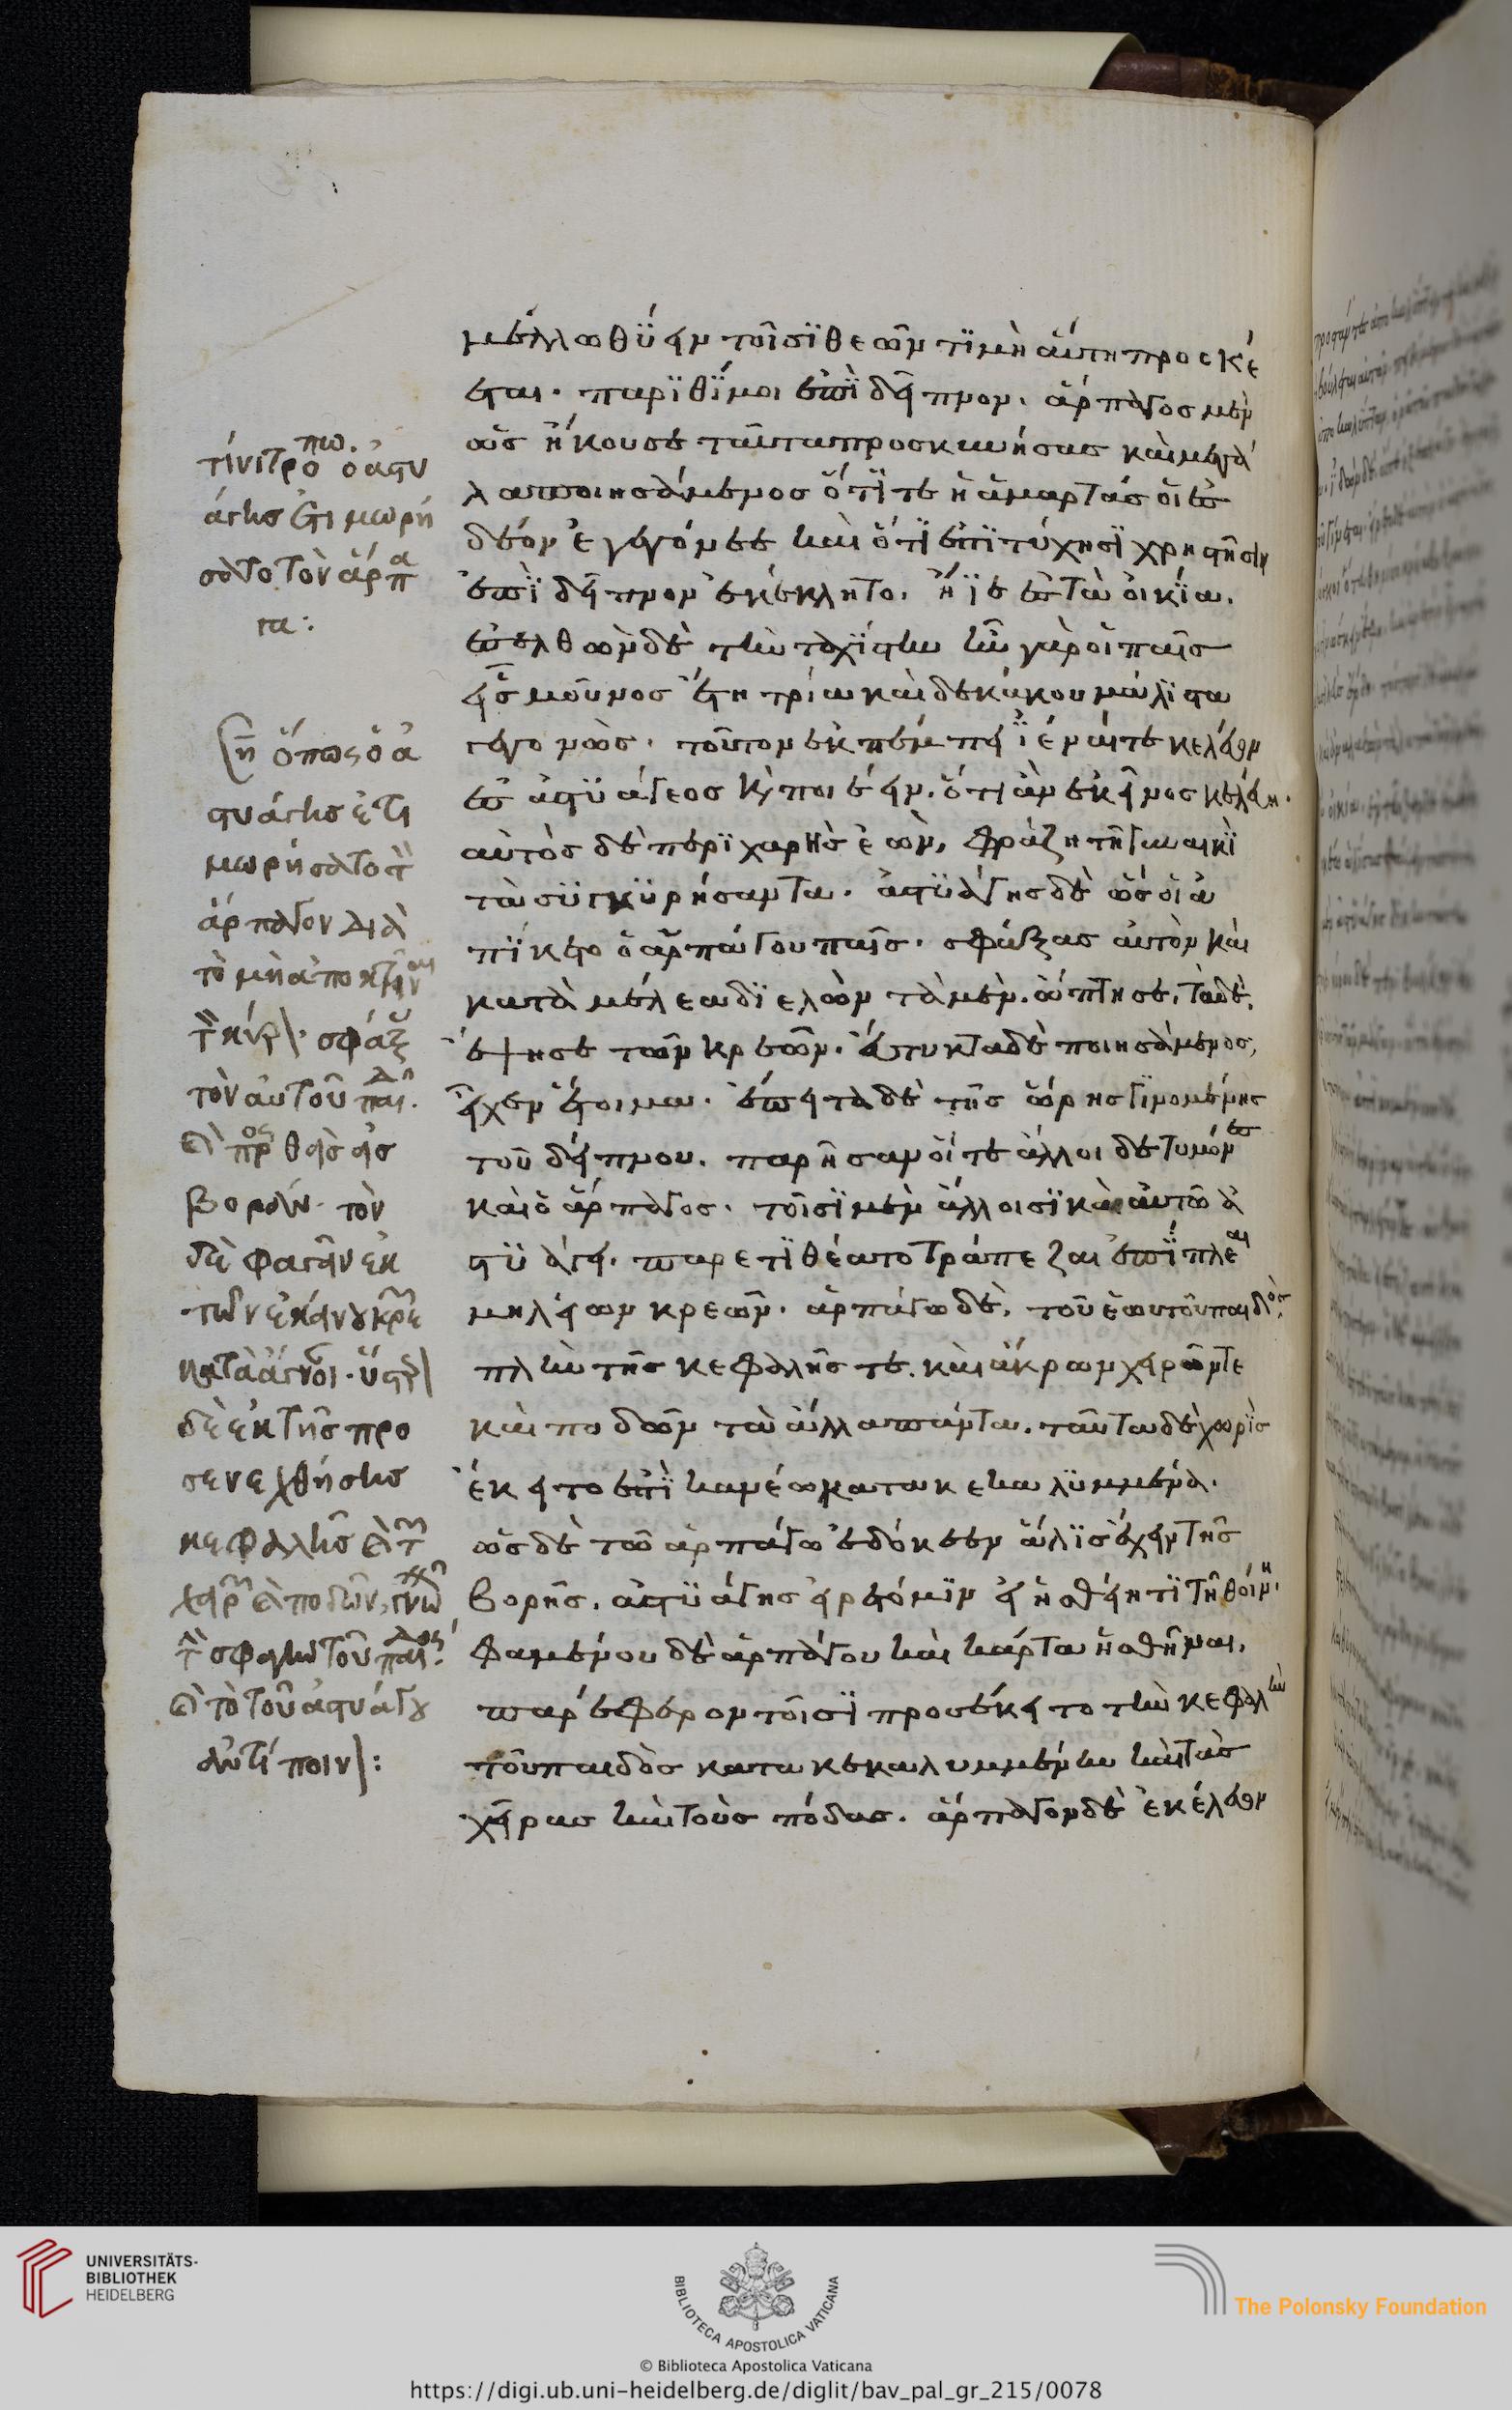 μέλλω θύειν τοῖσι θεῶν τιμὴ αὕτη προσκέ
εται. πάριθί μοι ἐπὶ δεῖπνον. ἅρπαγος μὲν
ὡς ἤκουσε ταῦτα προσκυνήσας καὶ μεγά
λα ποιησάμενος ὅτι τε ἡ ἁμαρτάς οἱ ἐς
δέον ἐγεγόνεε καὶ ὅτι ἐπὶ τύχησι χρηστῆσιν
ἐπὶ δεῖπνον ἐκέκλητο. ἤιε ἐς τὰ οἰκία.
ἐσελθὼν δὲ τὴν ταχίστην ἦν γὰρ οἱ παῖς
εἷς μοῦνος ἔτη τρία καὶ δέκα κου μάλιστα
γεγονώς. τοῦτον ἐκπέμπει ἰέναι τε κελεύων
ἐς ἀστυάγεος καὶ ποιέειν. ὅτι ἂν ἐκεῖνος κελεύη.
αὐτὸς δὲ περιχαρὴς ἐὼν, φράζει τῇ γυναικὶ
τὰ συγκυρήσαντα. ἀστυάγης δὲ ὥς οἱ ἀ
πίκετο ὁ ἁρπάγου παῖς. σφάξας αὐτὸν καὶ
κατὰ μέλεα διελὼν τὰ μὲν. ὤπτησε, τὰ δὲ,
ἕψησε τῶν κρεῶν. εὔτυκτα δὲ ποιησάμενος,
εἶχεν ἕτοιμα. ἐπείτε δὲ τῆς ὥρης γινομένης
τοῦ δείπνου. παρῆσαν οἵ τε ἄλλοι δαιτυμόνες
καὶ ὁ ἅρπαγος. τοῖσι μὲν ἄλλοισι καὶ αὐτῶ ἀ
στυάγει. παρετιθέατο τράπεζαι ἐπίπλεαι
μηλείων κρεῶν. ἁρπάγω δὲ, τοῦ ἑωυτοῦ παιδὸς.
πλὴν τῆς κεφαλῆς τε. καὶ ἄκρων χειρῶν τε
καὶ ποδῶν τὰ ἄλλα πάντα. ταῦτα δὲ χωρὶς
ἔκειτο ἐπὶ κανέω κατακεκαλυμμένα.
ὡς δὲ τῶ ἁρπάγω ἐδόκεεν ἅλις ἔχειν τῆς
βορῆς. ἀστυάγης εἴρετό μιν εἰ ἡσθείη τι τῇ θοίνῃ.
φαμένου δὲ ἁρπάγου καὶ κάρτα ἡσθῆναι,
παρέφερον τοῖσι προσέκειτο τὴν κεφαλὴν
τοῦ παιδὸς κατακεκαλυμμένην καὶ τὰς
χεῖρας καὶ τοὺς πόδας. ἅρπαγον δὲ ἐκέλευον
τίνι τρόπω. ὁ ἀστυ
άγης ἐτιμωρή
σατο τὸν ἅρπα
γα:
ἢ ὅπως ὁ ἀ
στυάγης ἐτι
μωρήσατο τὸν
ἅρπαγον διὰ
τὸ μὴ ἀποκτεῖναι
τὸν κῦρον. σφάξας
τὸν αὐτοῦ παῖδα.
καὶ προθεὶς εἰς
βορὰν. τὸν
δὲ φαγεῖν ἐκ
τῶν ἐκείνου κρεῶν
κατὰ ἄγνοιαν. ὕστερον
δὲ ἐκ τῆς προ
σενεχθείσης
κεφαλῆς καὶ τῶν
χειρῶν καὶ ποδῶν, γνῶναι
τὴν σφαγὴν τοῦ παιδός.
καὶ τὸ τοῦ ἀστυάγου
ἀντίποινον:
UNIVERSITÄTS-
BIBLIOTHEK
HEIDELBERG
BIBLIOTECA APOSTOLICA VATICANA
The Polonsky Foundation
© Biblioteca Apostolica Vaticana
https://digi.ub.uni-heidelberg.de/diglit/bav_pal_gr_215/0078